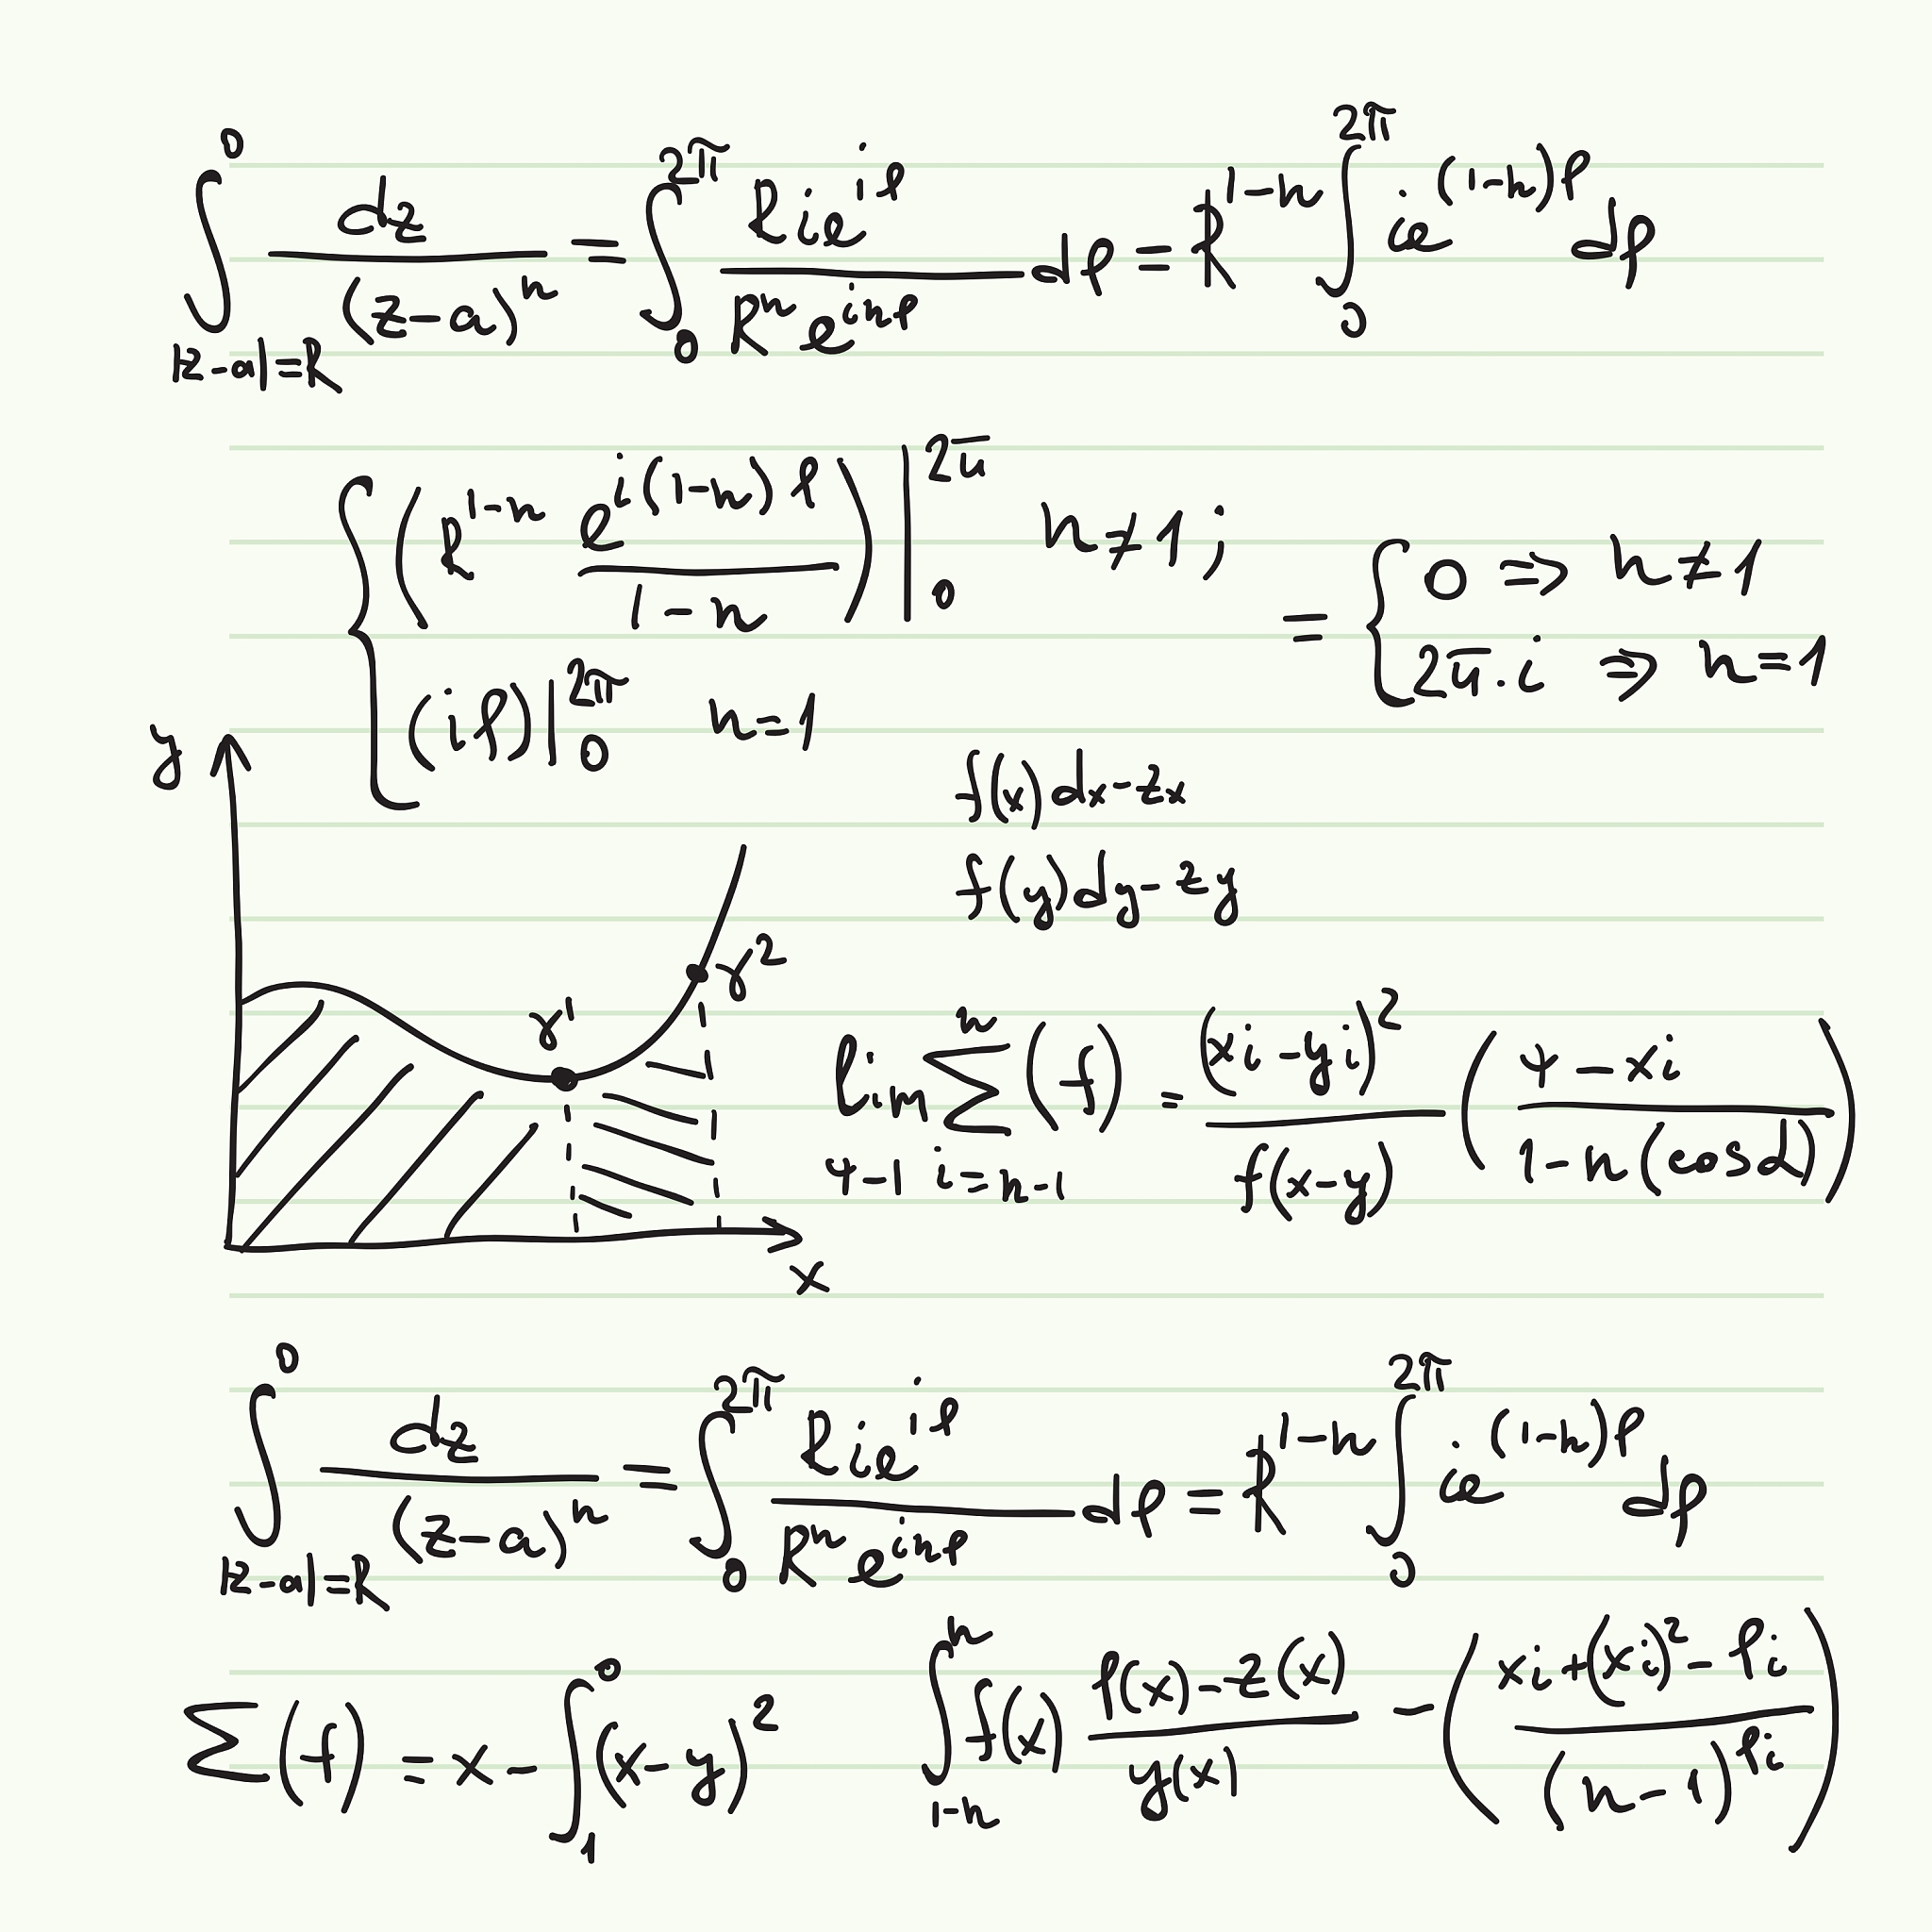 ∫_{|z-a|=R}^{0} dz/(z-a)^n = ∫_{0}^{2π} Rie^{iρ}/R^n e^{inρ} dρ = R^{1-n} ∫_{0}^{2π} ie^{(1-n)ρ} dρ
{ (R^{1-n} e^{i(1-n)ρ}/1-n) |_{0}^{2π} n≠1;
(iρ)|_{0}^{2π} n=1
= { 0 ⇒ n≠1
2π·i ⇒ n=1
y
f(x)dx-zx
f(y)dy-zy
γ^1
γ^2
lim_{φ-1} Σ_{i=n-1}^{n} (f) = (xi-yi)^2/f(x-y) (φ-xi/1-n(cosα))
x
∫_{|z-a|=R}^{0} dz/(z-a)^n = ∫_{0}^{2π} Rie^{iρ}/R^n e^{inρ} dρ = R^{1-n} ∫_{0}^{2π} ie^{(1-n)ρ} dρ
Σ(f) = x-∫_{1}^{0}(x-y)^2
∫_{1-n}^{n} f(x) ρ(x)-z(x)/y(x) - (xi+(xi)^2-ρi/(n-1)^{ρi})